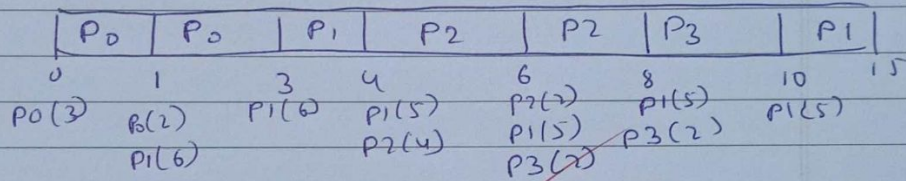 P0 P0 P1 P2 P2 P3 P1
0 1 3 4 6 8 10 15
P0(3) P0(2) P1(6) P1(5) P2(2) P1(5) P1(5)
P1(6) P2(4) P1(5) P3(2)
P3(2)